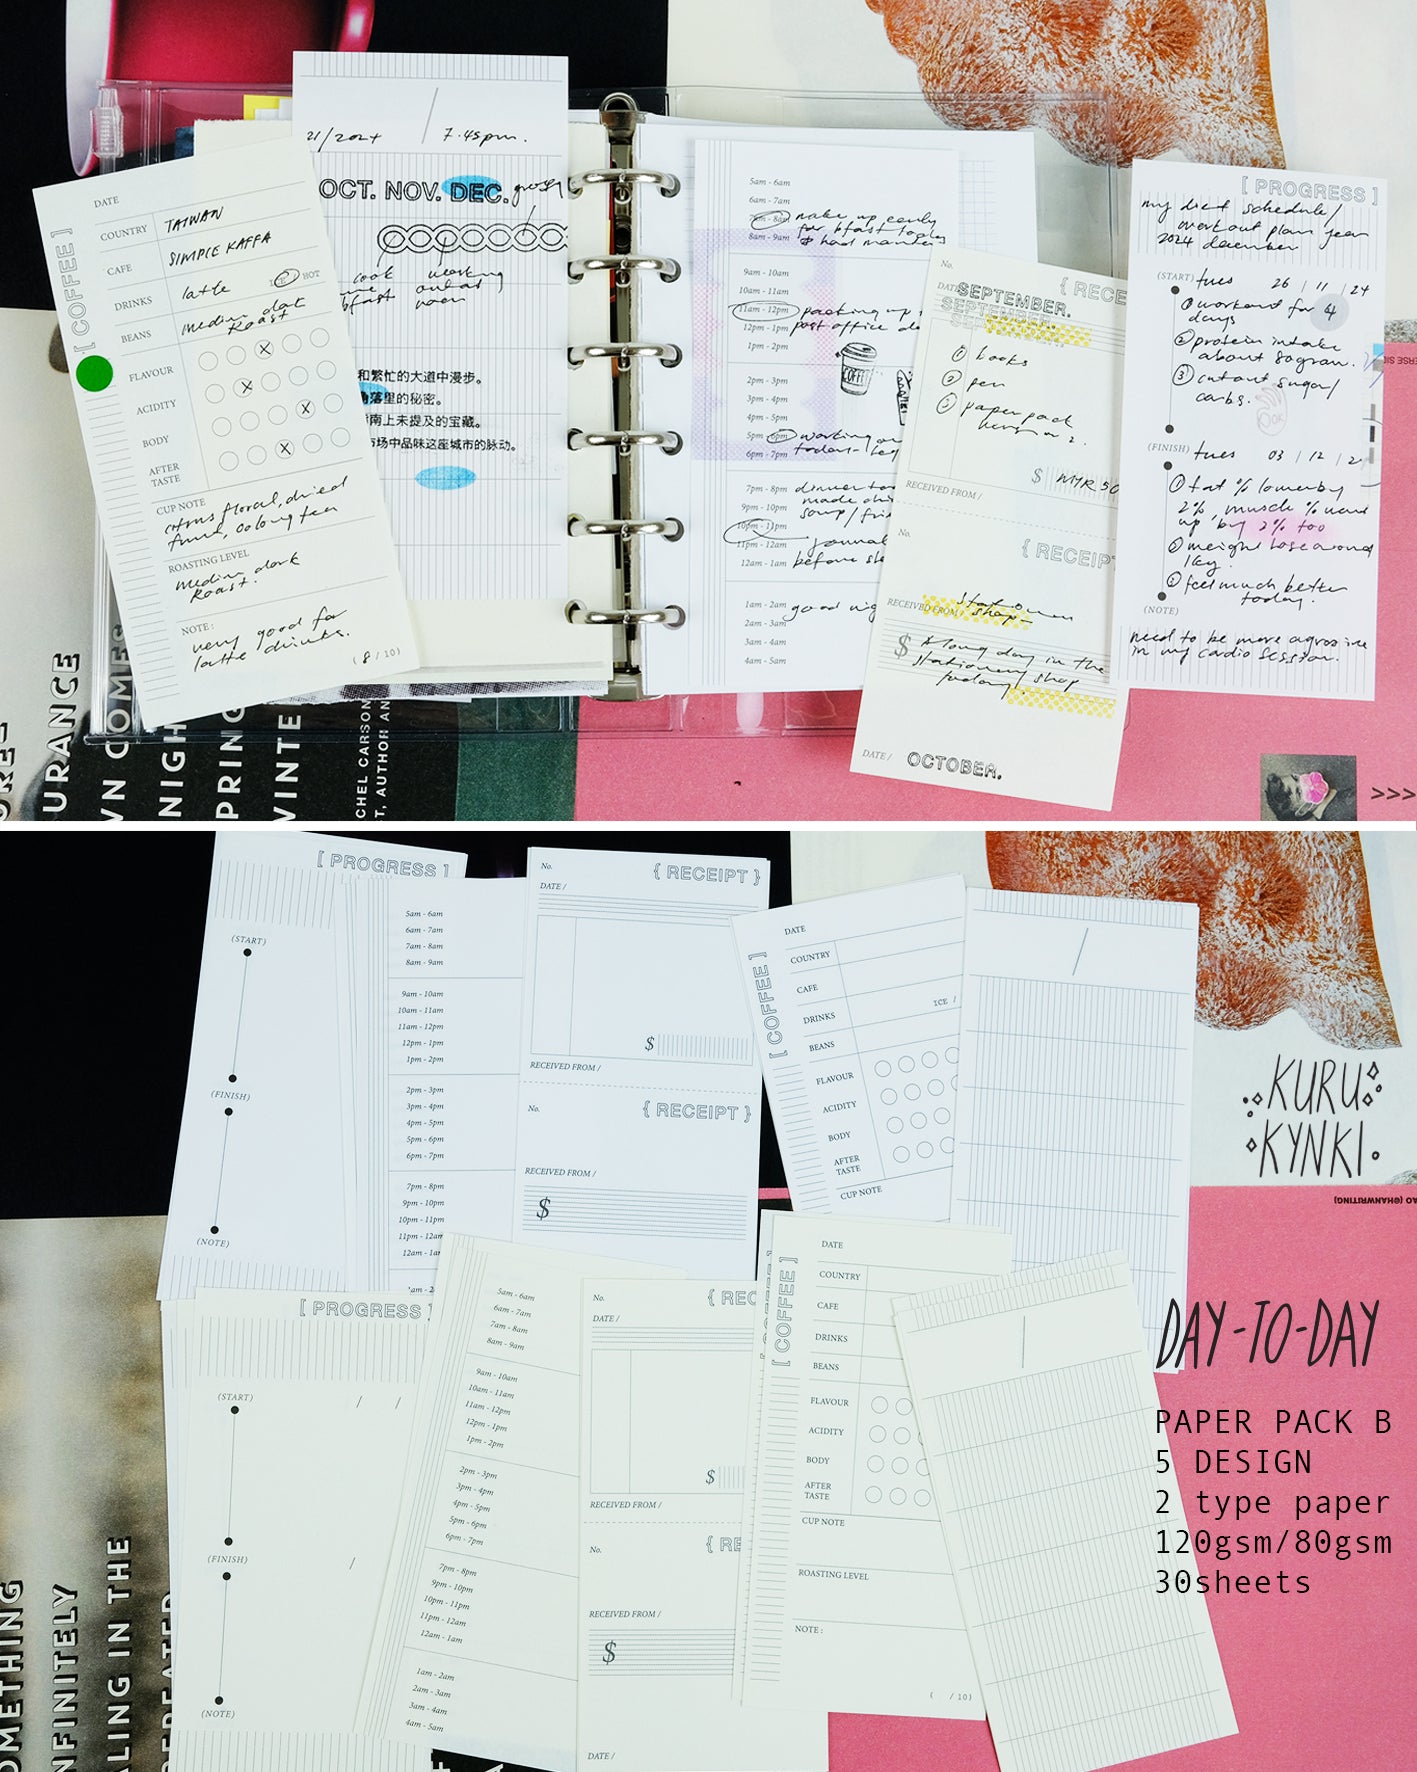 DATE
COUNTRY TAIWAN
CAFE SIMPLE KAFFA
DRINKS latte ICE / HOT
BEANS medium dark
Roast
[ COFFEE ]
FLAVOUR
ACIDITY
BODY
AFTER
TASTE
CUP NOTE
citrus floral, dried
fruit, oolong tea
ROASTING LEVEL
medium dark
Roast.
NOTE :
very good for
latte drinks.
( 8 / 10)
21/2024 / 7.45pm.
OCT. NOV. DEC.
cook
bfast
working
out at
noon
和繁忙的大道中漫步。
角落里的秘密。
南上未提及的宝藏。
市场中品味这座城市的脉动。
5am - 6am
6am - 7am
7am - 8am wake up early
8am - 9am for bfast today
9am - 10am
10am - 11am
11am - 12pm packing up
12pm - 1pm post office
1pm - 2pm
2pm - 3pm
3pm - 4pm
4pm - 5pm
5pm - 6pm working
6pm - 7pm today.
COFFEE
7pm - 8pm dinner
8pm - 9pm made
9pm - 10pm soup/
10pm - 11pm
11pm - 12am journal
12am - 1am before
1am - 2am good
2am - 3am
3am - 4am
4am - 5am
No.
{ RECE
DATE
SEPTEMBER.
SEPTEMBER.
① books
② pen
③ paper pack
version 2.
$ MYR 50
RECEIVED FROM /
No.
{ RECEIP
RECEIVED FROM /
shop
$ A long day in the
stationery shop
today
DATE / OCTOBER.
[ PROGRESS ]
my diet schedule/
workout plan year
2024 december
(START) tues 26 / 11 / 24
① workout for 4
days
② protein intake
about 80gram.
③ cut out sugar/
carbs.
OK
(FINISH) tues 03 / 12 / 2
① fat % lower by
2%, muscle % went
up by 2% too
② weight lose around
1kg.
③ feel much better
today.
(NOTE)
need to be more agressive
in my cardio session.
URANCE
WN COMES
NIGH
PRING
VINTE
CHEL CARSON
T, AUTHOR AN
>>>
[ PROGRESS ]
(START)
(FINISH)
(NOTE)
5am - 6am
6am - 7am
7am - 8am
8am - 9am
9am - 10am
10am - 11am
11am - 12pm
12pm - 1pm
1pm - 2pm
2pm - 3pm
3pm - 4pm
4pm - 5pm
5pm - 6pm
6pm - 7pm
7pm - 8pm
9pm - 10pm
10pm - 11pm
11pm - 12am
12am - 1am
1am - 2
No.
{ RECEIPT }
DATE /
$
RECEIVED FROM /
No.
{ RECEIPT }
RECEIVED FROM /
$
DATE
COUNTRY
CAFE
DRINKS ICE /
BEANS
[ COFFEE ]
FLAVOUR
ACIDITY
BODY
AFTER
TASTE
CUP NOTE
/
KURU
KYNKI
AO (@HANWRITING)
[ PROGRESS ]
(START) / /
(FINISH) /
(NOTE)
5am - 6am
6am - 7am
7am - 8am
8am - 9am
9am - 10am
10am - 11am
11am - 12pm
12pm - 1pm
1pm - 2pm
2pm - 3pm
3pm - 4pm
4pm - 5pm
5pm - 6pm
6pm - 7pm
7pm - 8pm
9pm - 10pm
10pm - 11pm
11pm - 12am
12am - 1am
1am - 2am
2am - 3am
3am - 4am
4am - 5am
No.
{ REC
DATE /
$
RECEIVED FROM /
No.
{ RE
RECEIVED FROM /
$
DATE /
DATE
COUNTRY
CAFE
DRINKS
BEANS
[ COFFEE ]
FLAVOUR
ACIDITY
BODY
AFTER
TASTE
CUP NOTE
ROASTING LEVEL
NOTE :
( / 10)
DAY-TO-DAY
PAPER PACK B
5 DESIGN
2 type paper
120gsm/80gsm
30sheets
OMETHING
NFINITELY
ALING IN THE
REPEATED